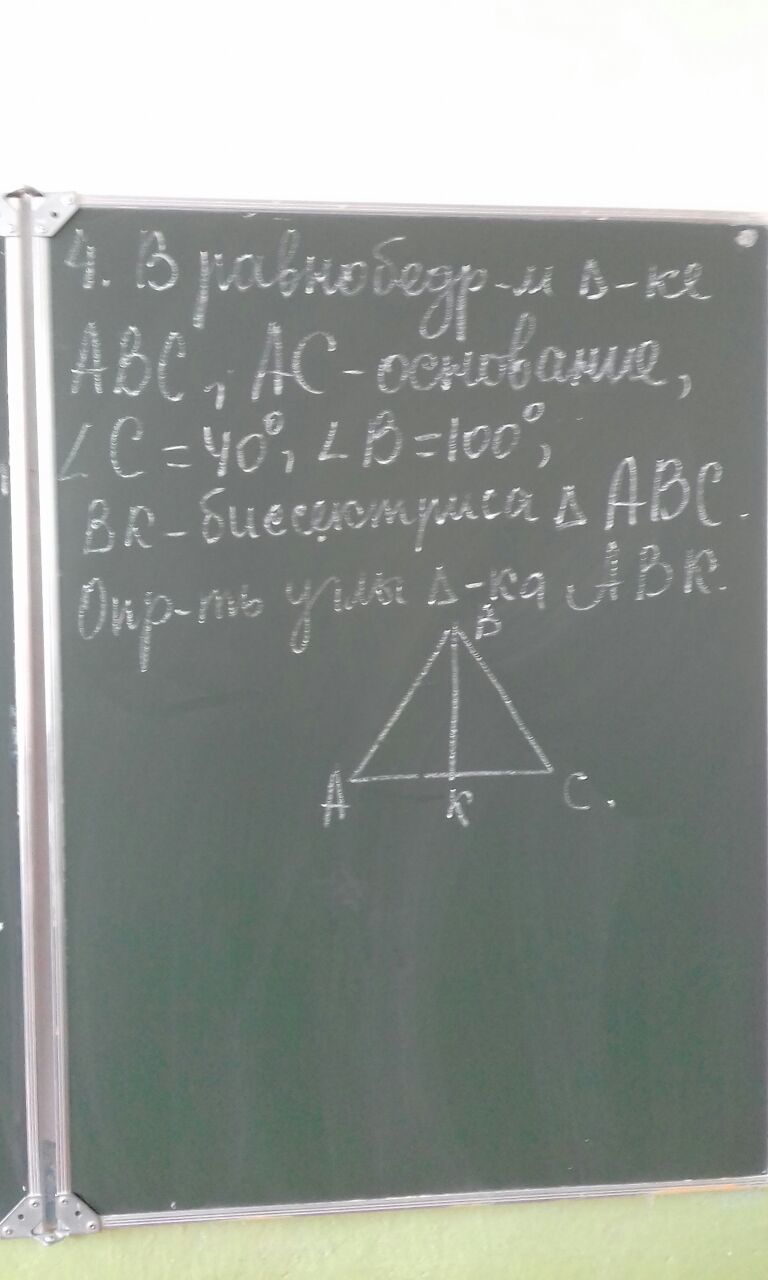 4. В равнобедр-м Δ-ке
АВС, АС-основание,
∠С=40°, ∠В=100°,
ВК-биссектриса Δ АВС.
Опр-ть углы Δ-ка АВК.
В
А
К
С.